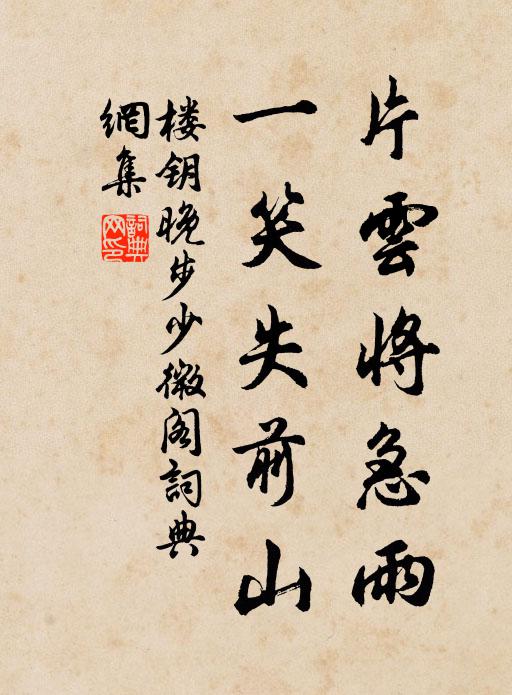 片雲將急雨
一笑失前山
楼钥晚步少微阁詞典
網集
詞典
网印